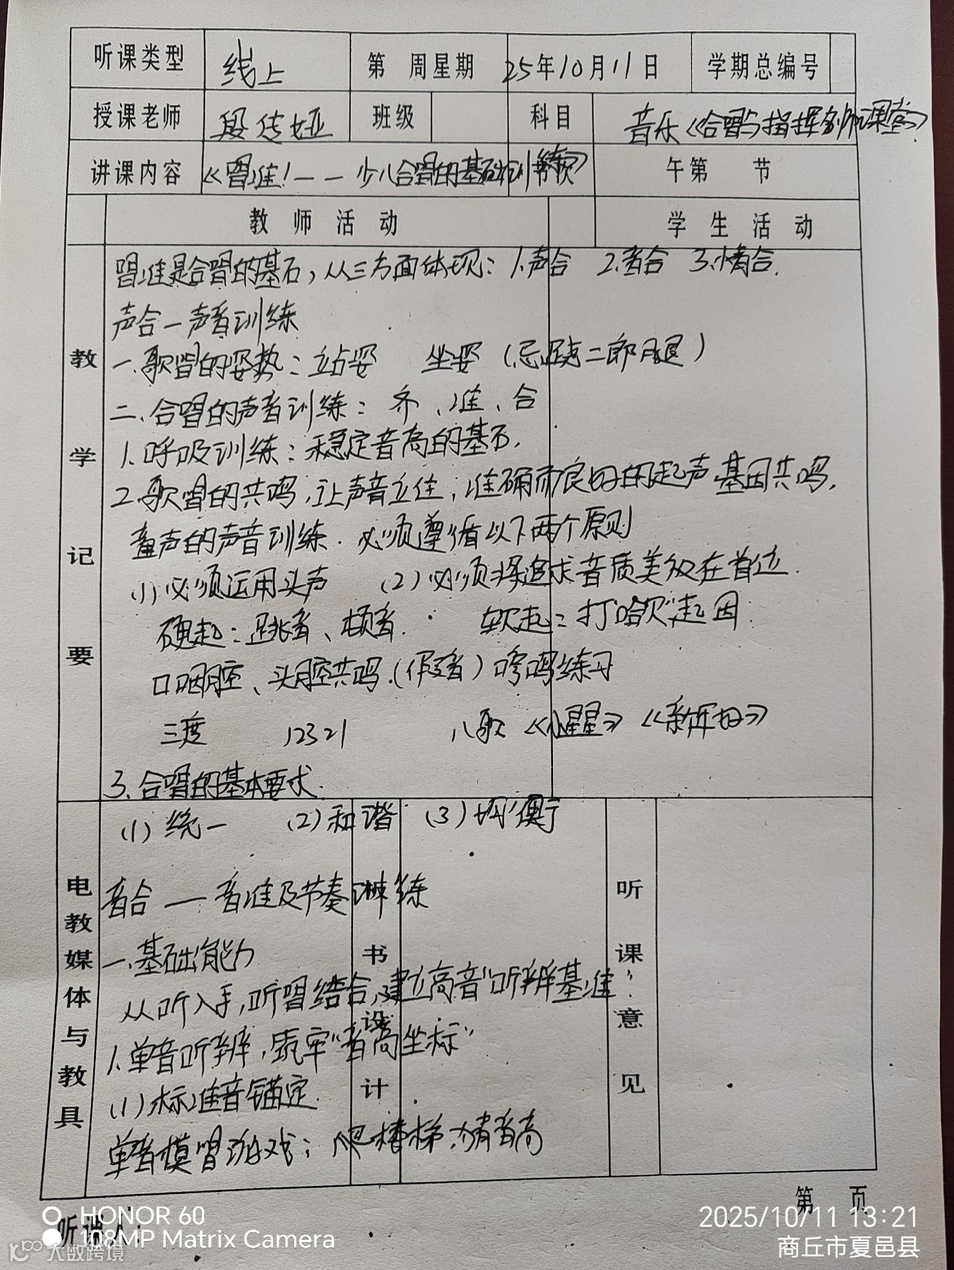 听课类型 线上 第 周星期 25年10月11日 学期总编号
授课老师 段 班级 科目 音乐《合唱与指挥名师课堂》
讲课内容 《唱准!——少儿合唱的基础训练》 午第 节
教师活动 学生活动
教学记要
唱准是合唱的基石,从三方面体现:1.声合 2.音合 3.情合.
声合—声音训练
一.歌唱的姿势:站姿 坐姿(忌跷二郎腿)
二.合唱的声音训练:齐、准、合
1.呼吸训练:稳定音高的基石.
2.歌唱的共鸣,让声音立住,准确而良好的起声基因共鸣.
童声的声音训练.必须遵循以下两个原则
(1)必须运用头声 (2)必须将追求音质美放在首位.
硬起:跳音、顿音. 软起:打哈欠起因.
口咽腔、头腔共鸣.(假音)哼鸣练习
三度 12321 儿歌《小星星》《新年好》
3.合唱的基本要求.
(1)统一 (2)和谐 (3)均衡
电教媒体与教具
书设计
听课意见
音合——音准及节奏训练
一.基础能力
从听入手,听唱结合,建立高音"听辨基准
1.单音听辨,筑牢"音高坐标"
(1)标准音锚定.
单音模唱游戏:爬楼梯猜音高
第 页
听课人:
HONOR 60
108MP Matrix Camera
2025/10/11 13:21
商丘市夏邑县
大数跨境